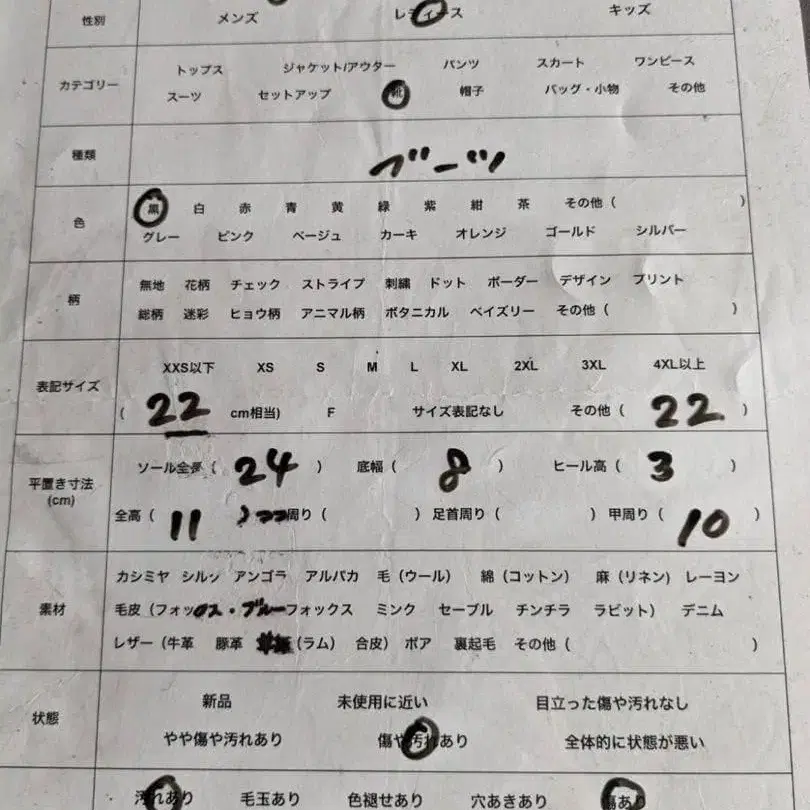 性別 メンズ レディース キッズ
カテゴリー
トップス ジャケット/アウター パンツ スカート ワンピース
スーツ セットアップ 靴 帽子 バッグ・小物 その他
種類 ブーツ
色
黒 白 赤 青 黄 緑 紫 紺 茶 その他 ( )
グレー ピンク ベージュ カーキ オレンジ ゴールド シルバー
柄
無地 花柄 チェック ストライプ 刺繍 ドット ボーダー デザイン プリント
総柄 迷彩 ヒョウ柄 アニマル柄 ボタニカル ペイズリー その他 ( )
表記サイズ
XXS以下 XS S M L XL 2XL 3XL 4XL以上
( 22 cm相当) F サイズ表記なし その他 ( 22 )
平置き寸法
(cm)
ソール全長 ( 24 ) 底幅 ( 8 ) ヒール高 ( 3 )
全高 ( 11 ) 周り ( ) 足首周り ( ) 甲周り ( 10 )
素材
カシミヤ シルク アンゴラ アルパカ 毛 (ウール) 綿 (コットン) 麻 (リネン) レーヨン
毛皮 (フォックス・ブルーフォックス ミンク セーブル チンチラ ラビット) デニム
レザー (牛革 豚革 (ラム) 合皮) ボア 裏起毛 その他 ( )
状態
新品 未使用に近い 目立った傷や汚れなし
やや傷や汚れあり 傷や汚れあり 全体的に状態が悪い
汚れあり 毛玉あり 色褪せあり 穴あきあり 傷あり